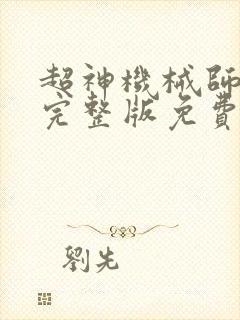 超神機械師
完整版免費
劉先